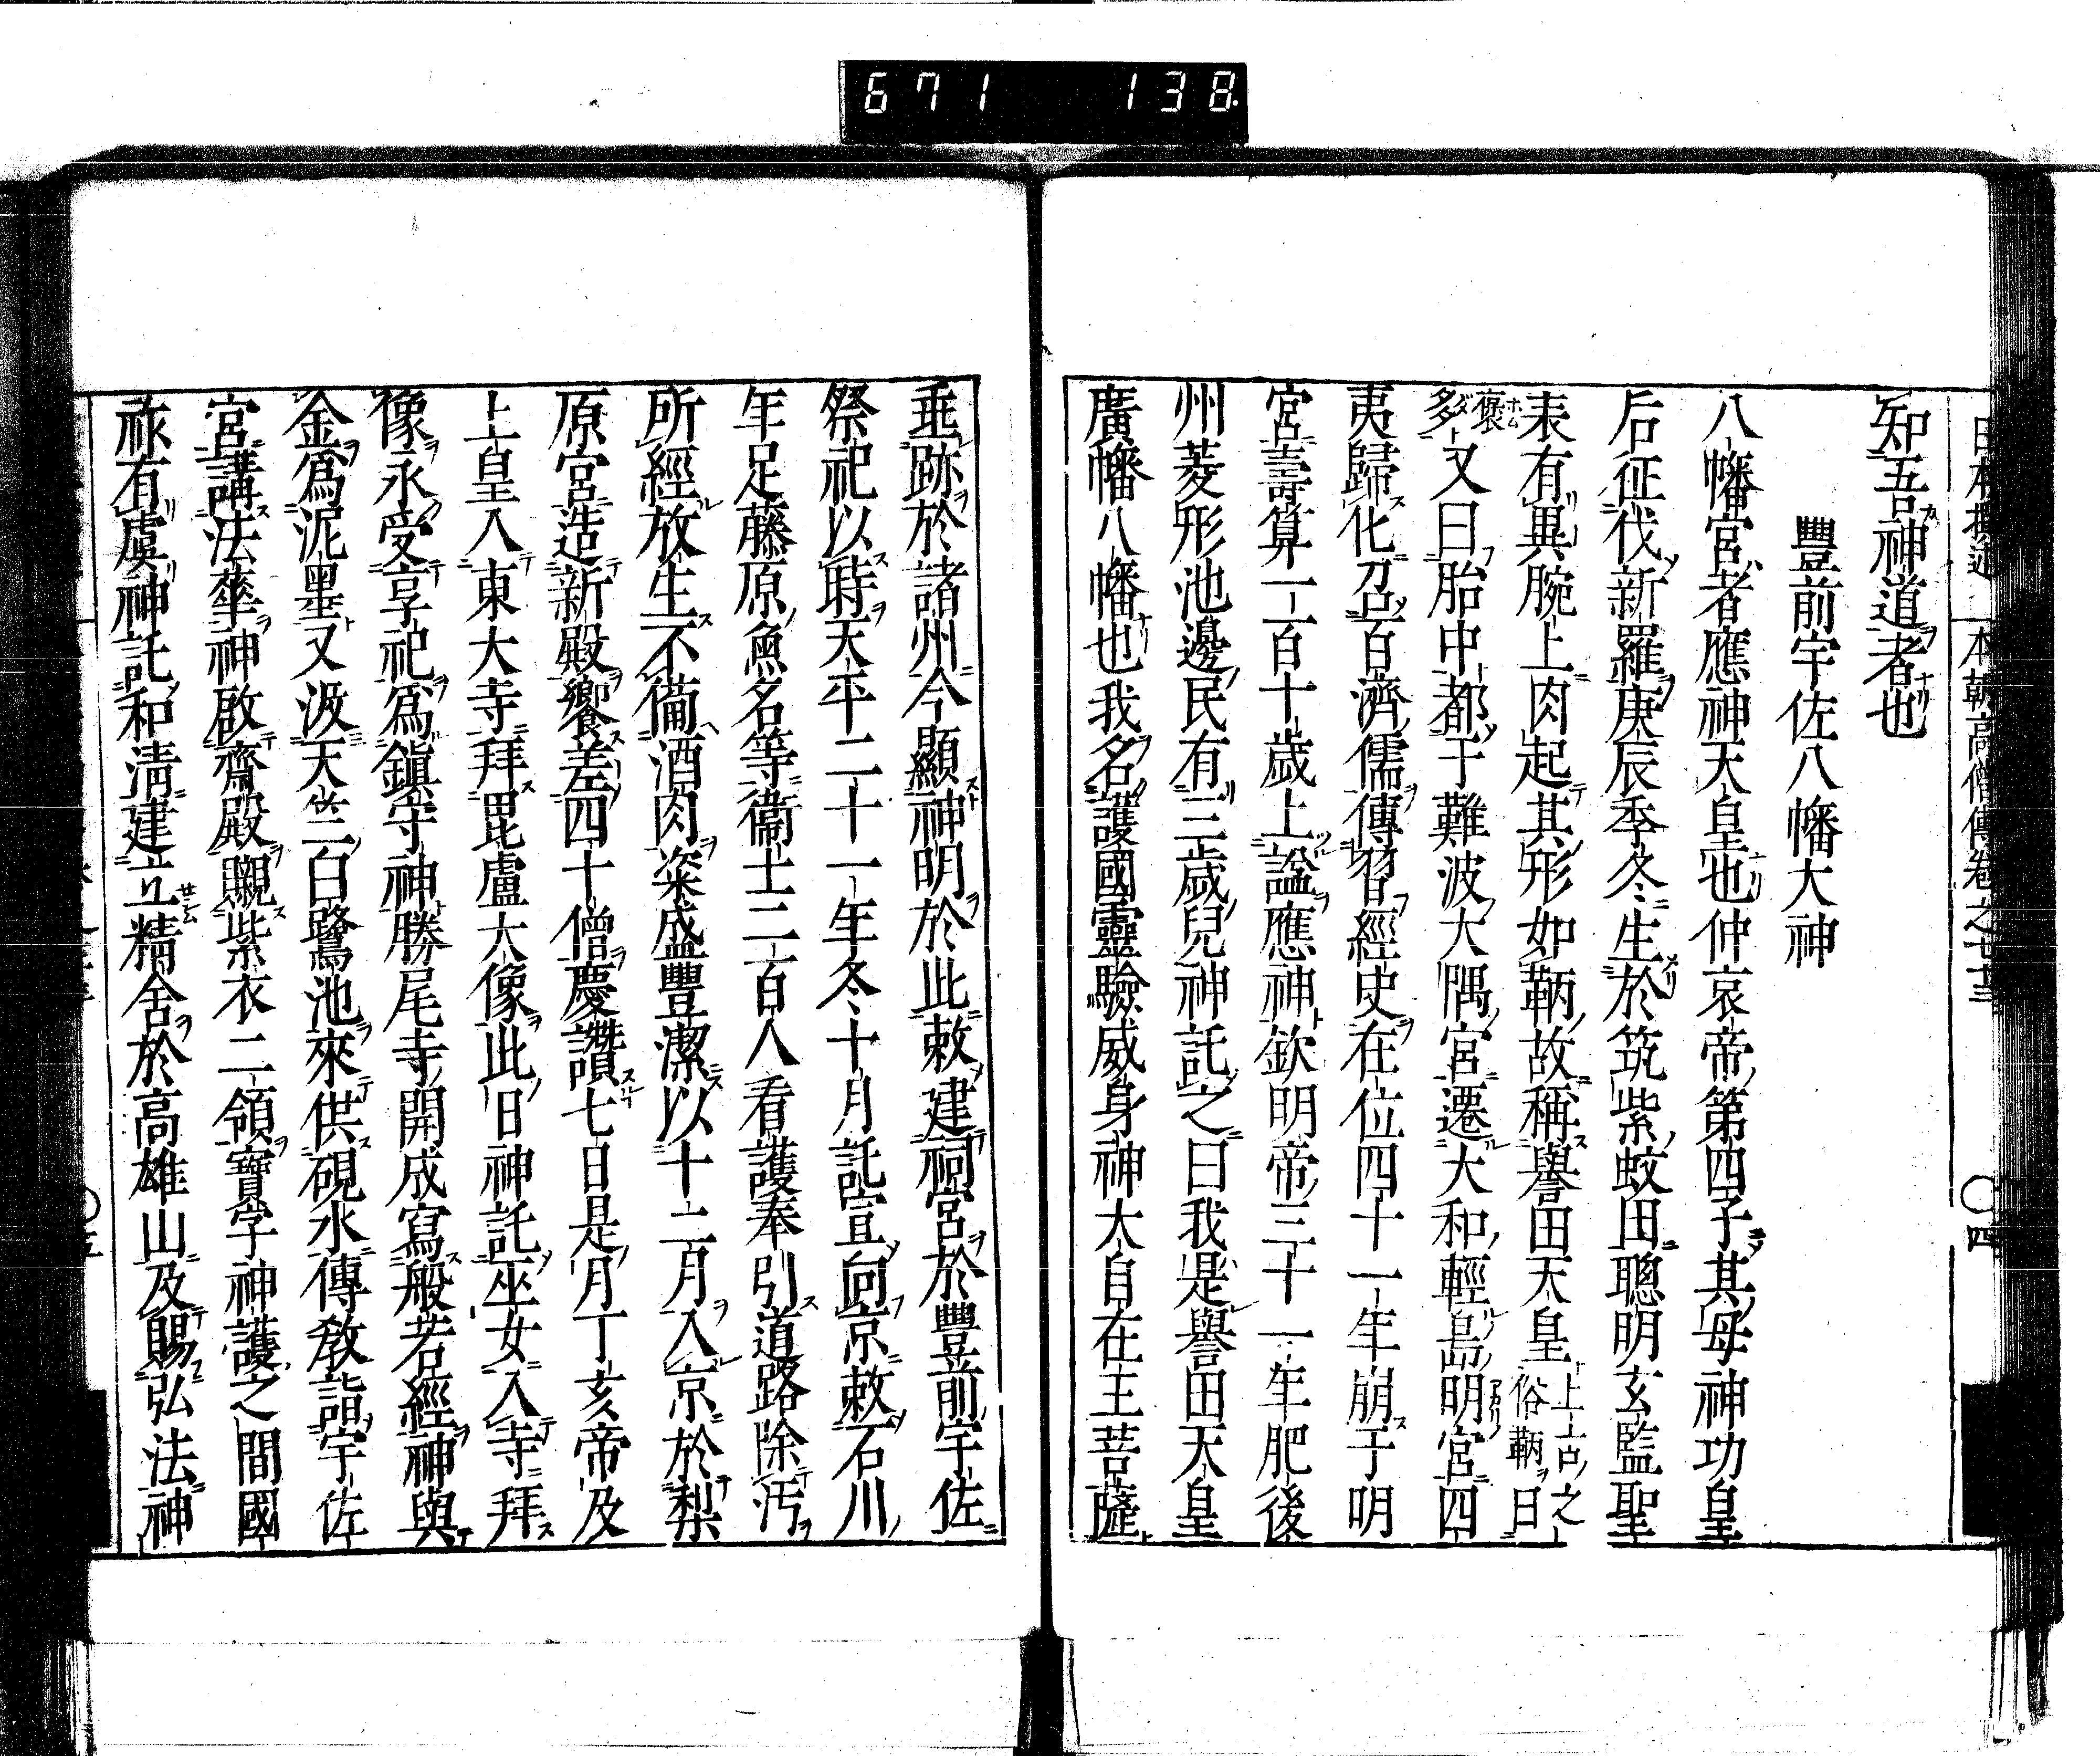 671 138
本朝高僧傳卷之七十三 〇四
知吾神道者也
豐前宇佐八幡大神
八幡宮者應神天皇也仲哀帝第四子其母神功皇
后征伐新羅庚辰季冬生於筑紫蚊田聰明玄監聖
表有異腕上肉起其形如鞆故稱譽田天皇上古之俗鞆曰
褒多又曰胎中都于難波大隅宮遷大和輕島明宮四
夷歸化召百濟儒傳習經史在位四十一年崩于明
宮壽算一百十歲上謚應神欽明帝三十一年肥後
州菱形池邊民有三歲兒神託之曰我是譽田天皇
廣幡八幡也我名護國靈驗威身神大自在王菩薩
垂跡於諸州今顯神明於此敕建祠宮於豐前宇佐
祭祀以時天平二十一年冬十月託宣向京敕石川
年足藤原魚名等衞士二百人看護奉引道路除汚
所經放生不備酒肉粢盛豐潔以十二月入京於梨
原宮造新殿饗差四十僧慶讚七日是月丁亥帝及
上皇入東大寺拜毘盧大像此日神託巫女入寺拜
像永受享祀爲鎭守神勝尾寺開成寫般若經神與
金爲泥墨又汲天竺白鷺池來供硯水傳敎詣宇佐
宮講法華神啟齋殿賜紫衣二領寶字神護之間國
祚有虞神託和淸建立精舍於高雄山及賜弘法神